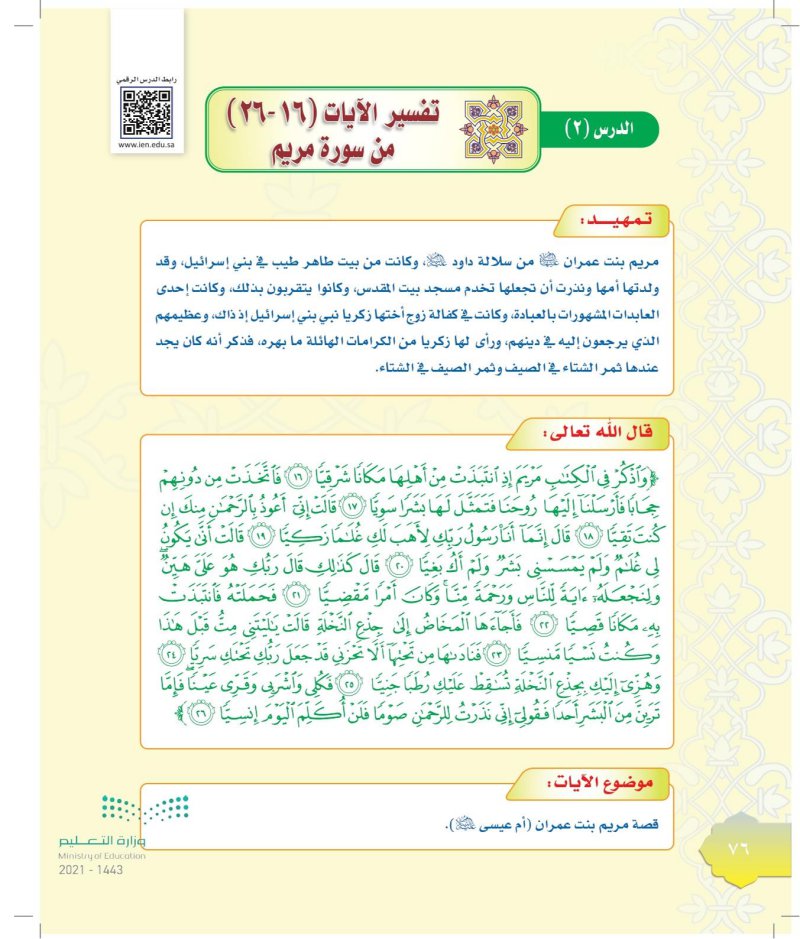 رابط الدرس الرقمي
www.ien.edu.sa
الدرس (٢)
تفسير الآيات (١٦-٢٦)
من سورة مريم
تمهيــد:
مريم بنت عمران من سلالة داود ، وكانت من بيت طاهر طيب في بني إسرائيل، وقد
ولدتها أمها ونذرت أن تجعلها تخدم مسجد بيت المقدس، وكانوا يتقربون بذلك، وكانت إحدى
العابدات المشهورات بالعبادة، وكانت في كفالة زوج أختها زكريا نبي بني إسرائيل إذ ذاك، وعظيمهم
الذي يرجعون إليه في دينهم، ورأى لها زكريا من الكرامات الهائلة ما بهره، فذكر أنه كان يجد
عندها ثمر الشتاء في الصيف وثمر الصيف في الشتاء.
قال الله تعالى:
﴿وَٱذۡكُرۡ فِي ٱلۡكِتَٰبِ مَرۡيَمَ إِذِ ٱنتَبَذَتۡ مِنۡ أَهۡلِهَا مَكَانٗا شَرۡقِيّٗا ١٦ فَٱتَّخَذَتۡ مِن دُونِهِمۡ
حِجَابٗا فَأَرۡسَلۡنَآ إِلَيۡهَا رُوحَنَا فَتَمَثَّلَ لَهَا بَشَرٗا سَوِيّٗا ١٧ قَالَتۡ إِنِّيٓ أَعُوذُ بِٱلرَّحۡمَٰنِ مِنكَ إِن
كُنتَ تَقِيّٗا ١٨ قَالَ إِنَّمَآ أَنَا۠ رَسُولُ رَبِّكِ لِأَهَبَ لَكِ غُلَٰمٗا زَكِيّٗا ١٩ قَالَتۡ أَنَّىٰ يَكُونُ
لِي غُلَٰمٞ وَلَمۡ يَمۡسَسۡنِي بَشَرٞ وَلَمۡ أَكُ بَغِيّٗا ٢٠ قَالَ كَذَٰلِكِ قَالَ رَبُّكِ هُوَ عَلَيَّ هَيِّنٞۖ
وَلِنَجۡعَلَهُۥٓ ءَايَةٗ لِّلنَّاسِ وَرَحۡمَةٗ مِّنَّاۚ وَكَانَ أَمۡرٗا مَّقۡضِيّٗا ٢١ فَحَمَلَتۡهُ فَٱنتَبَذَتۡ
بِهِۦ مَكَانٗا قَصِيّٗا ٢٢ فَأَجَآءَهَا ٱلۡمَخَاضُ إِلَىٰ جِذۡعِ ٱلنَّخۡلَةِ قَالَتۡ يَٰلَيۡتَنِي مِتُّ قَبۡلَ هَٰذَا
وَكُنتُ نَسۡيٗا مَّنسِيّٗا ٢٣ فَنَادَىٰهَا مِن تَحۡتِهَآ أَلَّا تَحۡزَنِي قَدۡ جَعَلَ رَبُّكِ تَحۡتَكِ سَرِيّٗا ٢٤
وَهُزِّيٓ إِلَيۡكِ بِجِذۡعِ ٱلنَّخۡلَةِ تُسَٰقِطۡ عَلَيۡكِ رُطَبٗا جَنِيّٗا ٢٥ فَكُلِي وَٱشۡرَبِي وَقَرِّي عَيۡنٗاۖ فَإِمَّا
تَرَيِنَّ مِنَ ٱلۡبَشَرِ أَحَدٗا فَقُولِيٓ إِنِّي نَذَرۡتُ لِلرَّحۡمَٰنِ صَوۡمٗا فَلَنۡ أُكَلِّمَ ٱلۡيَوۡمَ إِنسِيّٗا ٢٦﴾
موضوع الآيات:
قصة مريم بنت عمران (أم عيسى ).
وزارة التعـــليم
Ministry of Education
2021 - 1443
٧٦